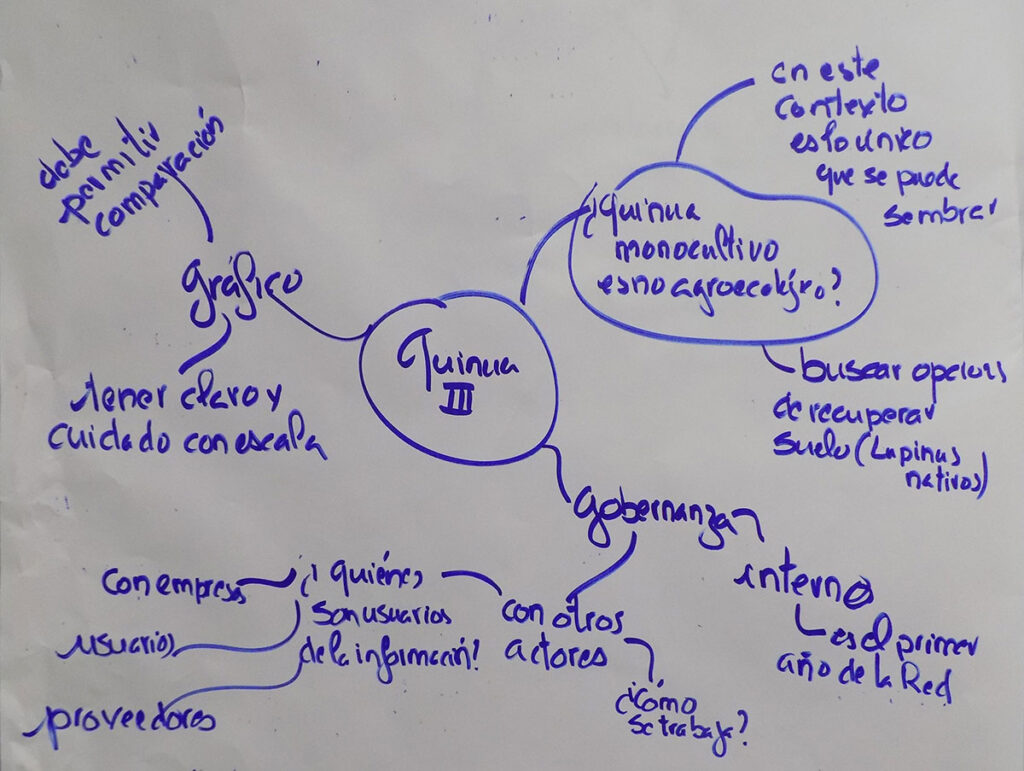 debe
permitir
comparación
gráfico
tener claro y
cuidado con escala
Quinua
III
en este
contexto
es lo único
que se puede
sembrar
¿quinua
monocultivo
es no agroecológico?
buscar opciones
de recuperar
suelo (Lupinus
nativos)
gobernanza
interno
es el primer
año de la Red
con otros
actores
¿Cómo
se trabaja?
¿quiénes
son usuarios
de la información?
con empresas
usuarios
proveedores